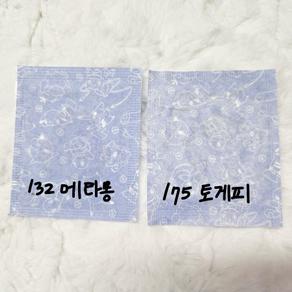 132 메타몽
175 토게피